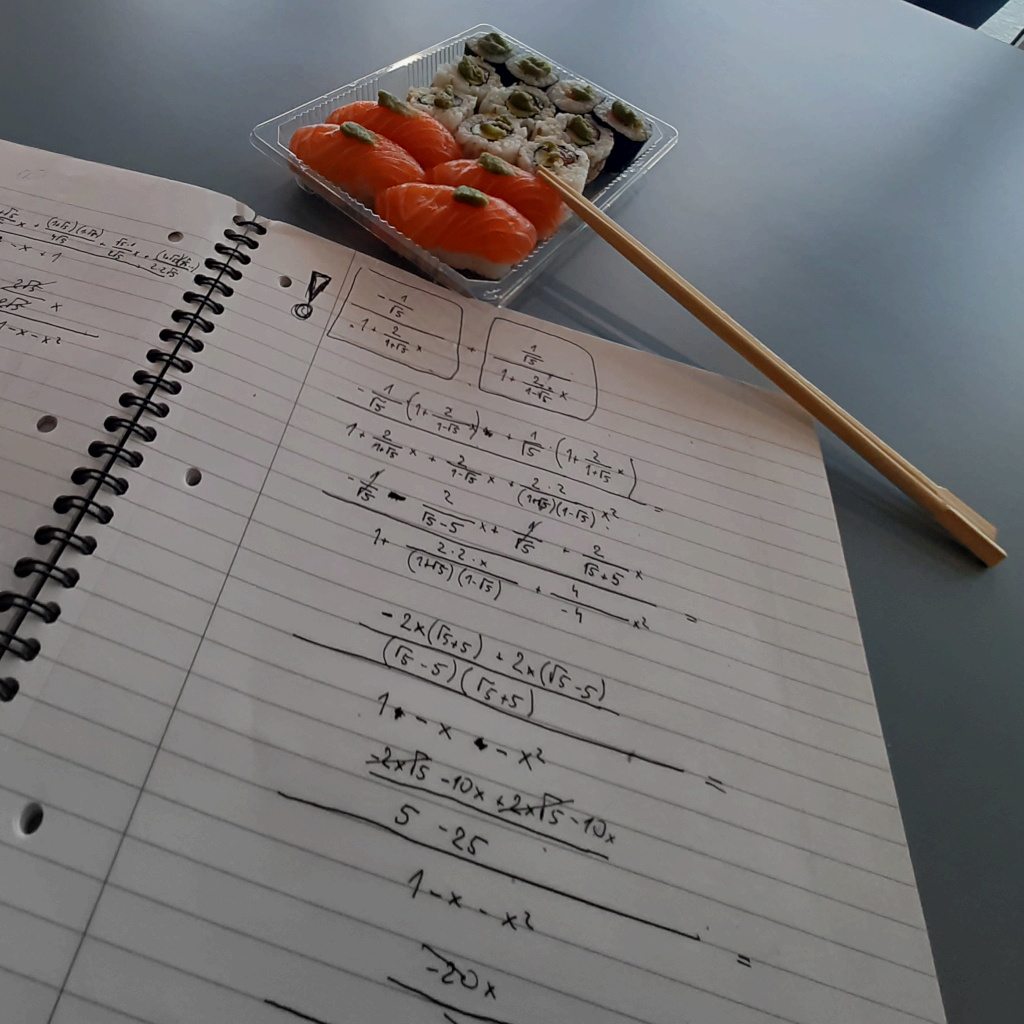 !
-1/√5 / 1+ 2/(1+√5) x + 1/√5 / 1+ 2/(1-√5) x
-1/√5 · (1+ 2/(1-√5) x) + 1/√5 · (1+ 2/(1+√5) x)
1+ 2/(1+√5) x + 2/(1-√5) x + 2·2/((1+√5)(1-√5)) x² =
-1/√5 - 2/(√5-5) x + 1/√5 + 2/(√5+5) x
1+ 2·2·x/((1+√5)(1-√5)) + 4/-4 x² =
-2x(√5+5) + 2x(√5-5)
(√5-5)(√5+5)
1 - x - x² =
-2x√5 -10x +2x√5 -10x
5 -25
1-x-x² =
-20x
x
1-x-x²